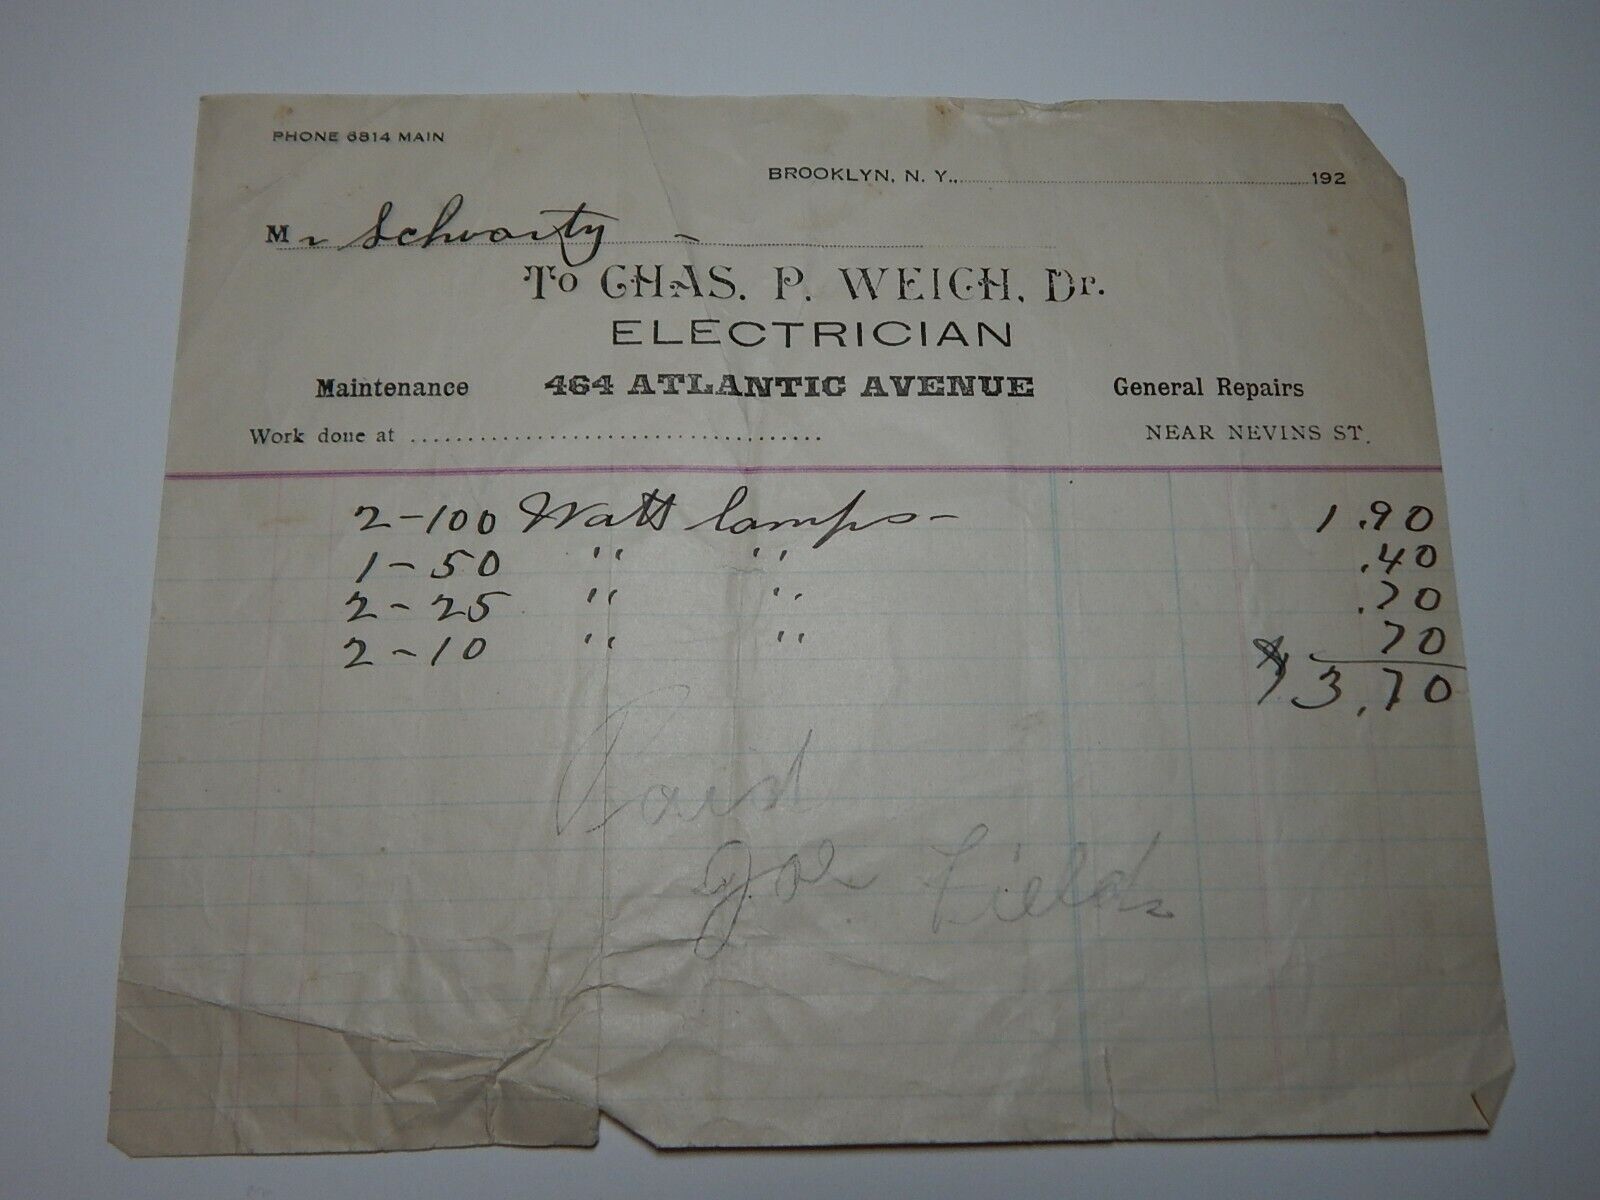 PHONE 6814 MAIN
BROOKLYN, N. Y., 192
Mr Schwartz -
To CHAS. P. WEIGH, Dr.
ELECTRICIAN
Maintenance 464 ATLANTIC AVENUE General Repairs
Work done at NEAR NEVINS ST.
2-100 Watt lamps- 1.90
1-50 " " .40
2-25 " " .70
2-10 " " 70
$3.70
Paid
Joe Fields